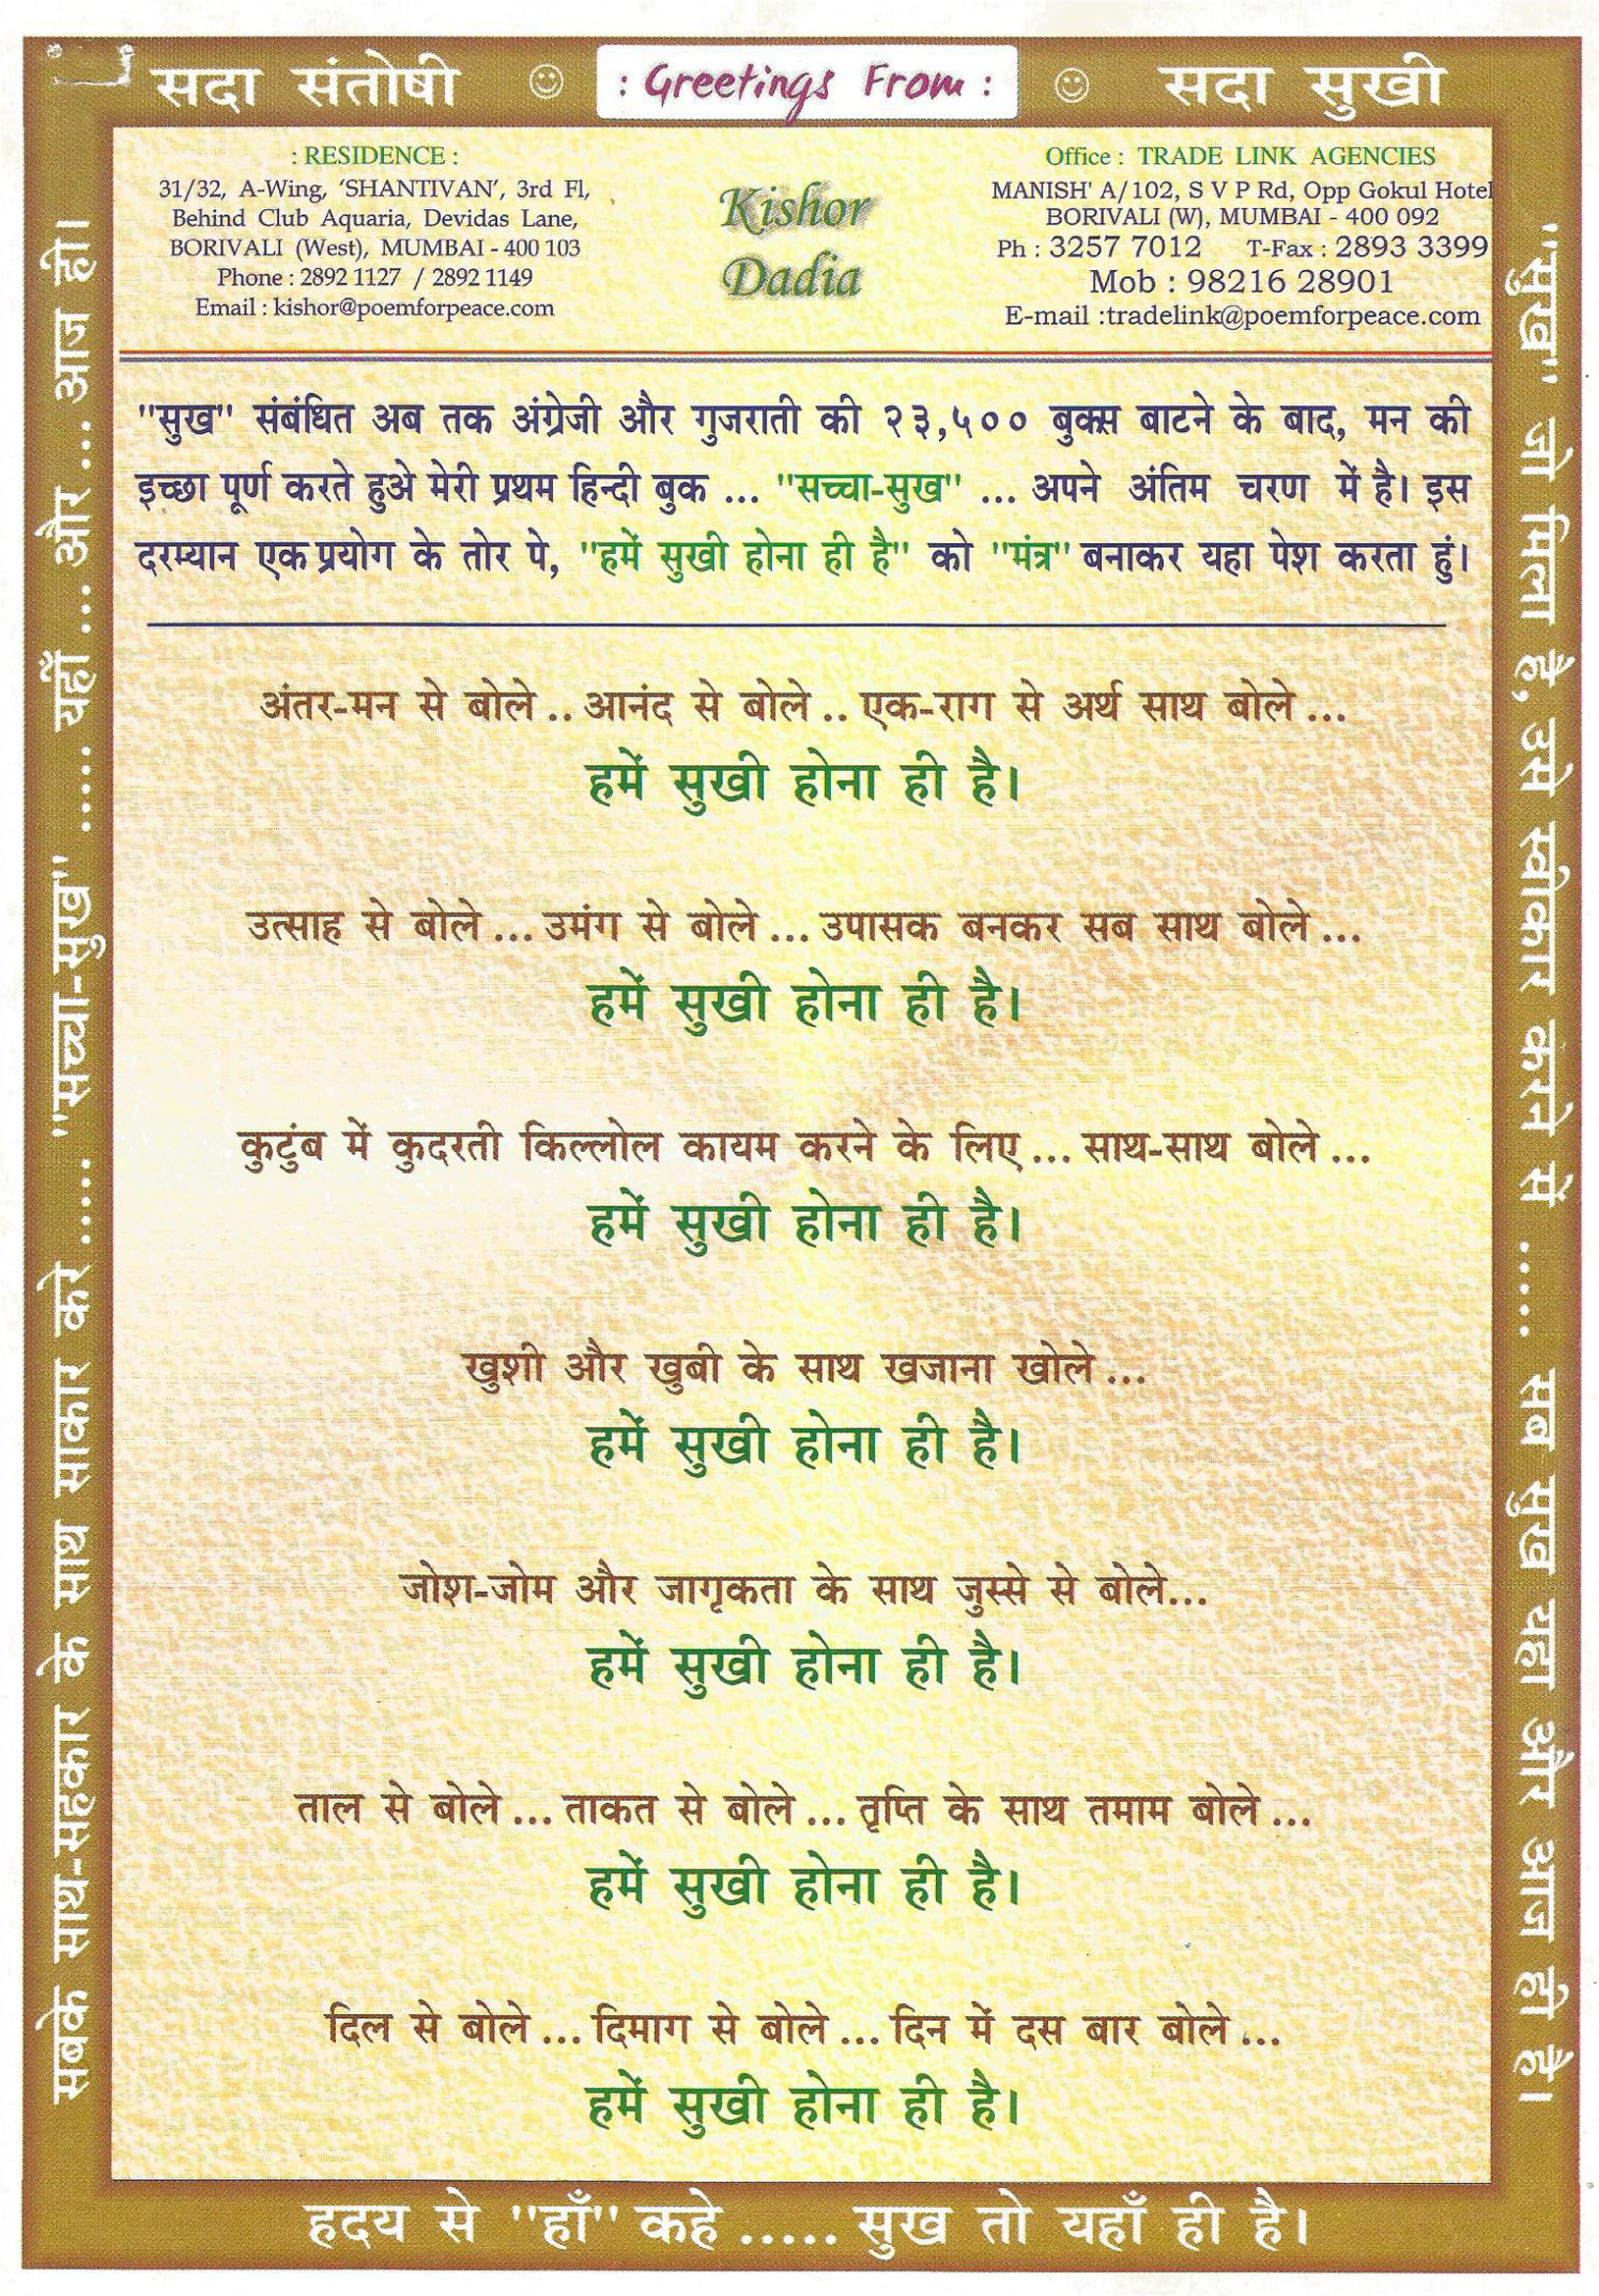 सदा संतोषी : Greetings From : सदा सुखी
: RESIDENCE :
31/32, A-Wing, ‘SHANTIVAN’, 3rd Fl,
Behind Club Aquaria, Devidas Lane,
BORIVALI (West), MUMBAI - 400 103
Phone : 2892 1127 / 2892 1149
Email : kishor@poemforpeace.com
Kishor
Dadia
Office : TRADE LINK AGENCIES
MANISH' A/102, S V P Rd, Opp Gokul Hotel
BORIVALI (W), MUMBAI - 400 092
Ph : 3257 7012 T-Fax : 2893 3399
Mob : 98216 28901
E-mail :tradelink@poemforpeace.com
"सुख" संबंधित अब तक अंग्रेजी और गुजराती की २३,५०० बुक्स बाटने के बाद, मन की
इच्छा पूर्ण करते हुअे मेरी प्रथम हिन्दी बुक ... "सच्चा-सुख" ... अपने अंतिम चरण में है। इस
दरम्यान एक प्रयोग के तोर पे, "हमें सुखी होना ही है" को "मंत्र" बनाकर यहा पेश करता हुं।
अंतर-मन से बोले .. आनंद से बोले .. एक-राग से अर्थ साथ बोले ...
हमें सुखी होना ही है।
उत्साह से बोले ... उमंग से बोले ... उपासक बनकर सब साथ बोले ...
हमें सुखी होना ही है।
कुटुंब में कुदरती किल्लोल कायम करने के लिए ... साथ-साथ बोले ...
हमें सुखी होना ही है।
खुशी और खुबी के साथ खजाना खोले ...
हमें सुखी होना ही है।
जोश-जोम और जागृकता के साथ जुस्से से बोले...
हमें सुखी होना ही है।
ताल से बोले ... ताकत से बोले ... तृप्ति के साथ तमाम बोले ...
हमें सुखी होना ही है।
दिल से बोले ... दिमाग से बोले ... दिन में दस बार बोले ...
हमें सुखी होना ही है।
हदय से "हाँ" कहे ..... सुख तो यहाँ ही है।
सबके साथ-सहकार के साथ साकार करे ..... "सच्चा-सुख" ..... यहाँ ... और ... आज ही।
"सुख" जो मिला है, उसे स्वीकार करने से ..... सब सुख यहा और आज ही है।